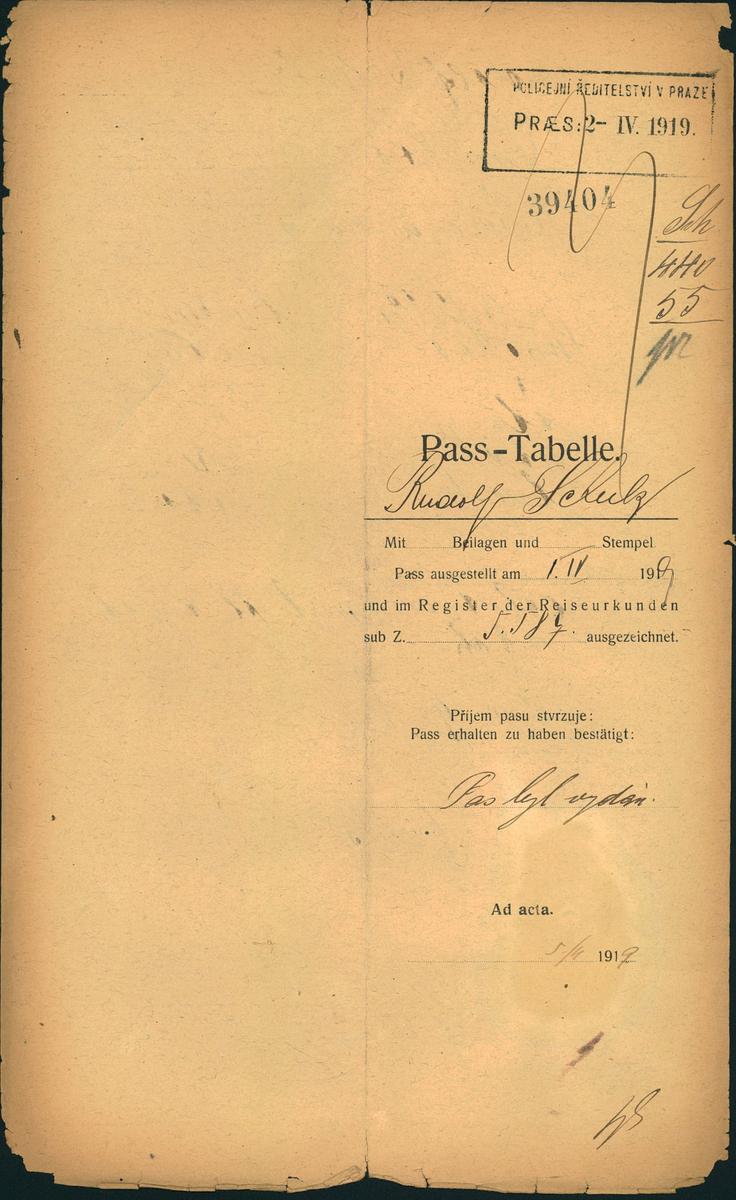 POLICEJNÍ ŘEDITELSTVÍ V PRAZE
PRÆS: 2- IV. 1919.
39404
Sch
440
55
Pass-Tabelle.
Rudolf Schulz
Mit Beilagen und Stempel
Pass ausgestellt am 1. IV 1919
und im Register der Reiseurkunden
sub Z. 5.587. ausgezeichnet.
Příjem pasu stvrzuje:
Pass erhalten zu haben bestätigt:
Pas byl vydán.
Ad acta.
1919